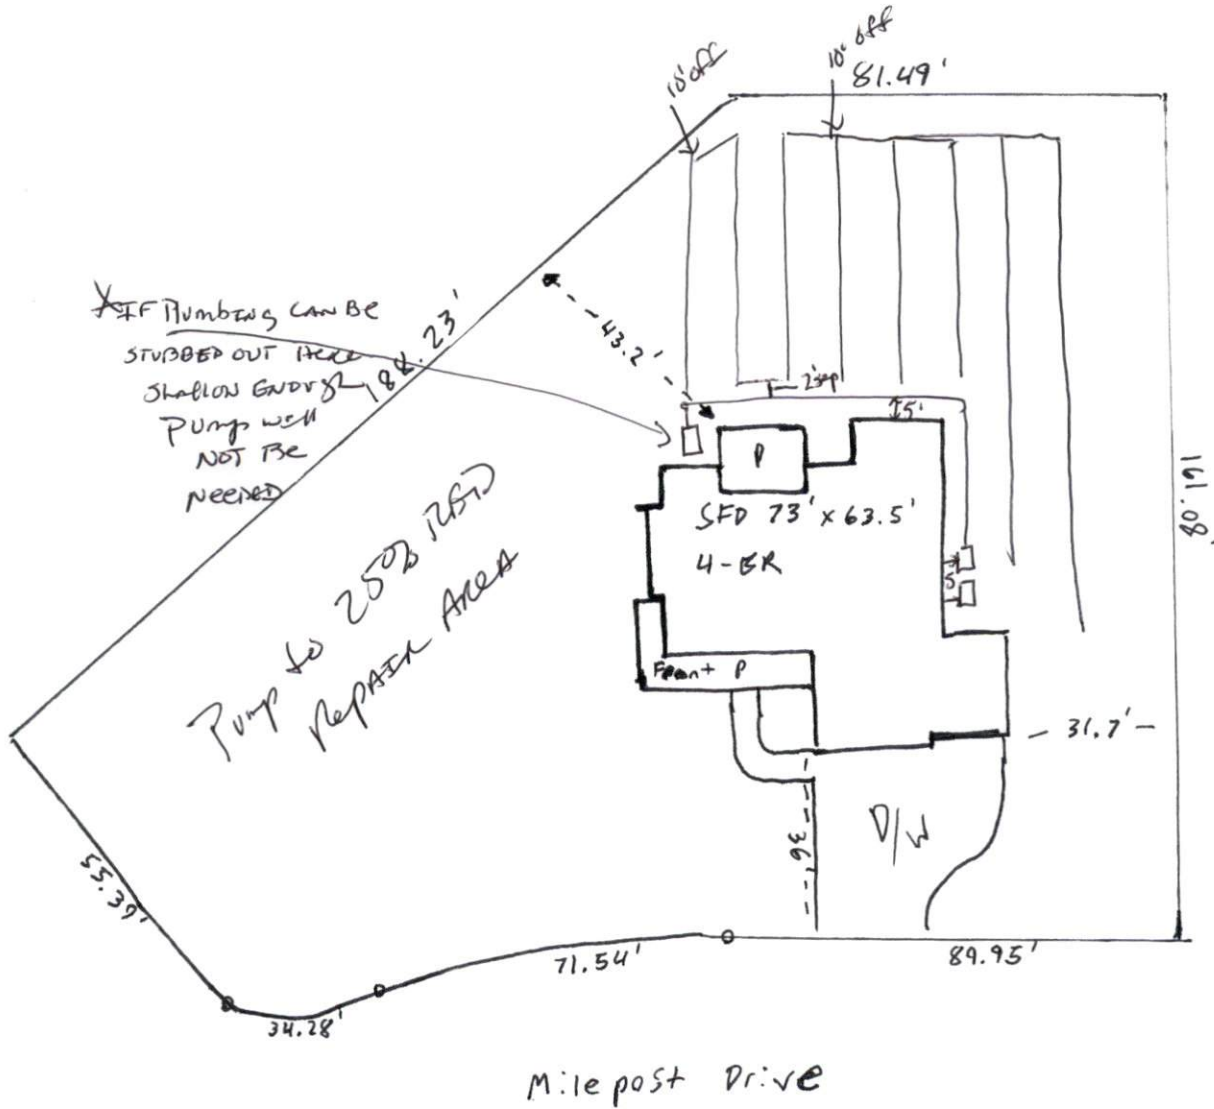 10' off
10' off
81.49'
* IF Plumbing CAN Be
STUBBED OUT Here
Shallow ENough
Pump will
NOT Be
Needed
188.23'
43.2'
2' sep
5'
P
SFD 73' x 63.5'
4-BR
5'
161.08'
Pump to 25% RED
Repair Area
Front P
31.7'
36'
D/W
55.39'
34.28'
71.54'
89.95'
Milepost Drive